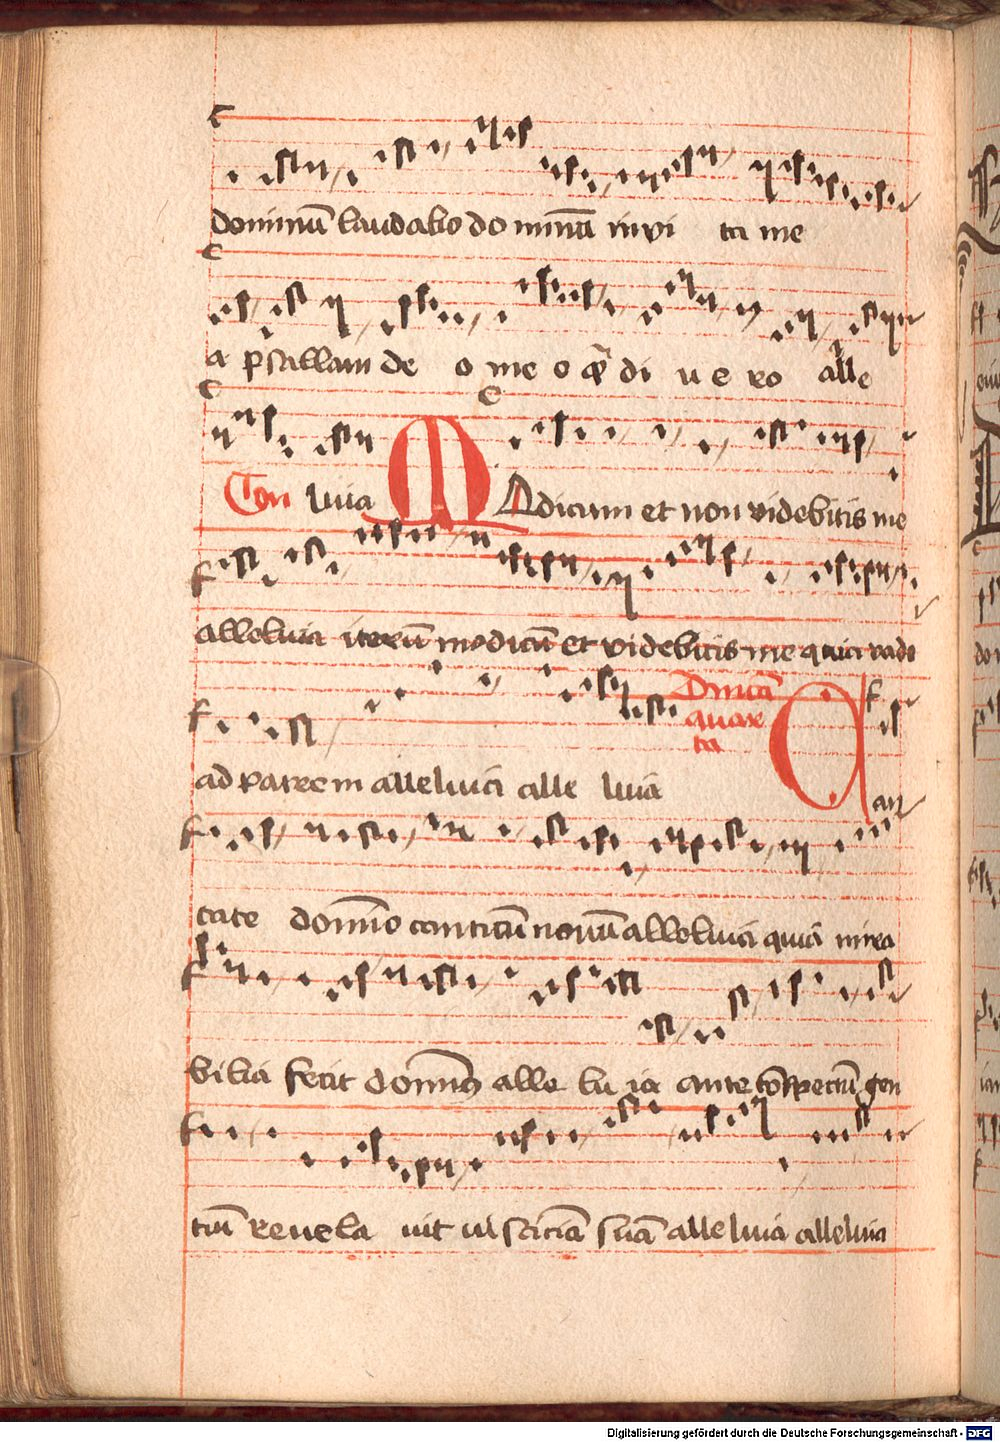 dominū laudabo do minū in vi ta me
a psallam de o me o qͣ di u e ro alle
Con luia Modicum et non videbitis me
alleluia iterū modicū et videbitis me quia vado
ad patrem alleluia alle luia Dnica quar ta Can
tate domīo canticū novū alleluia quia mira
bilia fecit domīus alle lu ia ante cōspectū gen
tiū revela vit iusticiā suā alleluia alleluia
Digitalisierung gefördert durch die Deutsche Forschungsgemeinschaft - DFG